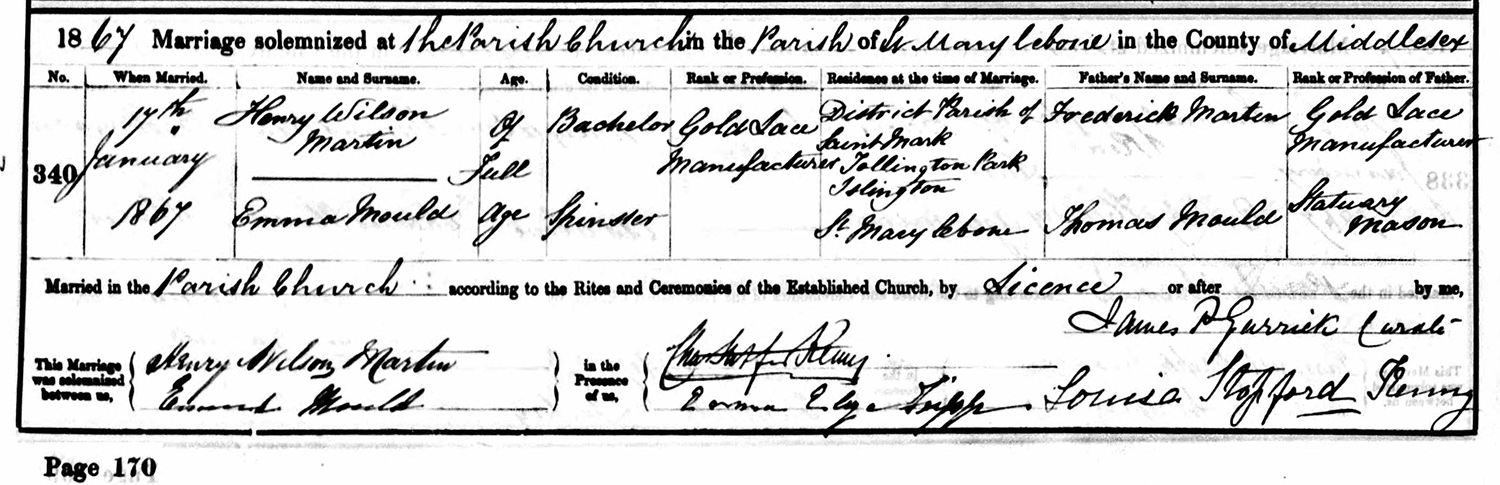 1867 Marriage solemnized at the Parish Church in the Parish of St Marylebone in the County of Middlesex
No. When Married. Name and Surname. Age. Condition. Rank or Profession. Residence at the time of Marriage. Father's Name and Surname. Rank or Profession of Father.
340
17th
January
1867
Henry Wilson
Martin
Emma Mould
Of
Full
Age
Bachelor
Spinster
Gold Lace
Manufacturer
District Parish of
Saint Mark
Tollington Park
Islington
St. Marylebone
Frederick Martin
Thomas Mould
Gold Lace
Manufacturer
Statuary
Mason
Married in the Parish Church according to the Rites and Ceremonies of the Established Church, by Licence or after by me,
James Curate
This Marriage
was solemnized
between us,
Henry Wilson Martin
Emma Mould
in the
Presence
of us,
Emma Tripp
Louisa Stopford Kenny
Page 170